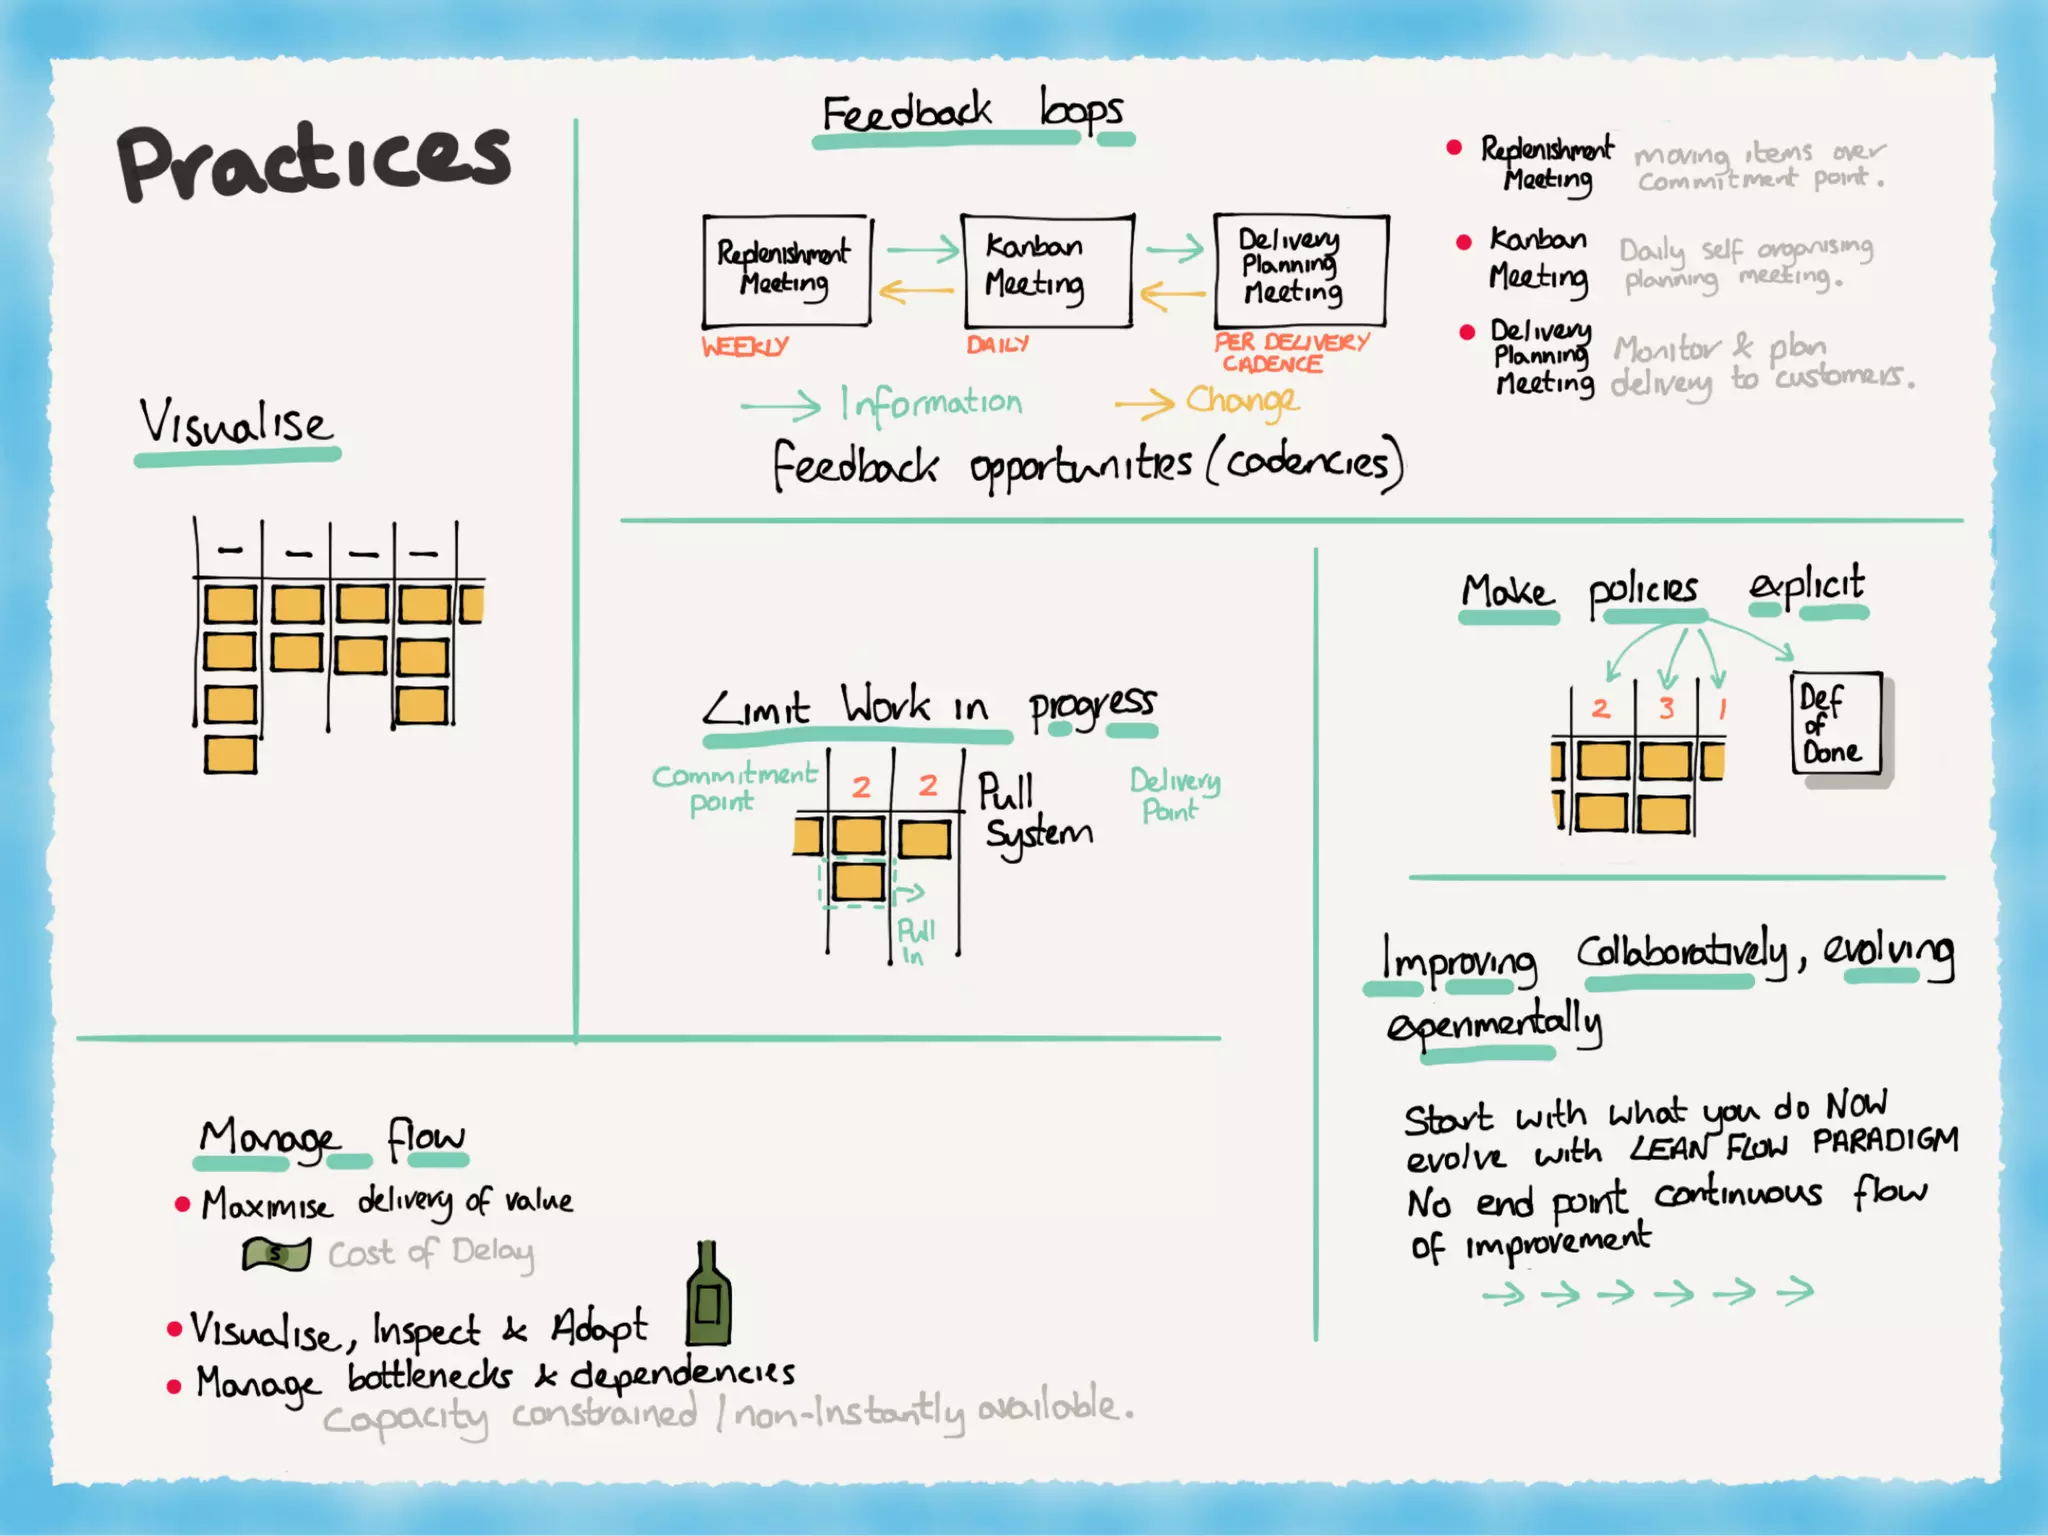 Practices
Visualise
Feedback loops
Replenishment
Meeting
Kanban
Meeting
Delivery
Planning
Meeting
WEEKLY
DAILY
PER DELIVERY
CADENCE
Information
Change
Feedback opportunities (cadencies)
Replenishment
Meeting
moving items over
commitment point.
Kanban
Meeting
Daily self organising
planning meeting.
Delivery
Planning
Meeting
Monitor & plan
delivery to customers.
Limit Work in progress
Commitment
point
2 2
Pull
System
Delivery
Point
Pull
In
Make policies explicit
2 3 1
Def
of
Done
Improving Collaboratively, evolving
experimentally
Start with what you do NOW
evolve with LEAN FLOW PARADIGM
No end point continuous flow
of improvement
Manage flow
Maximise delivery of value
$ Cost of Delay
Visualise, Inspect & Adapt
Manage bottlenecks & dependencies
Capacity constrained / non-instantly available.